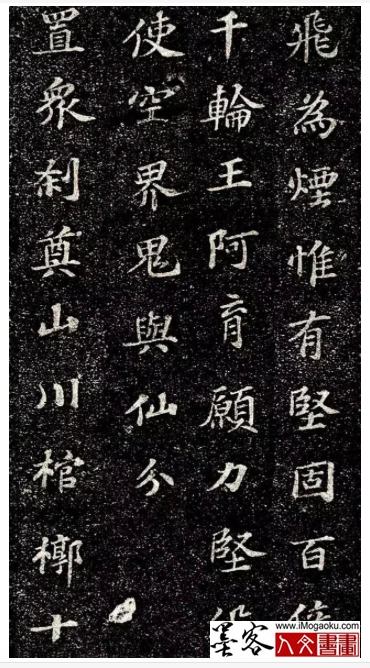 飛為煙惟有堅固百
千輪王阿育願力堅
使空界鬼與仙分
置衆刹奠山川棺槨十
www.iMogaoku.com
墨客
人文書畫